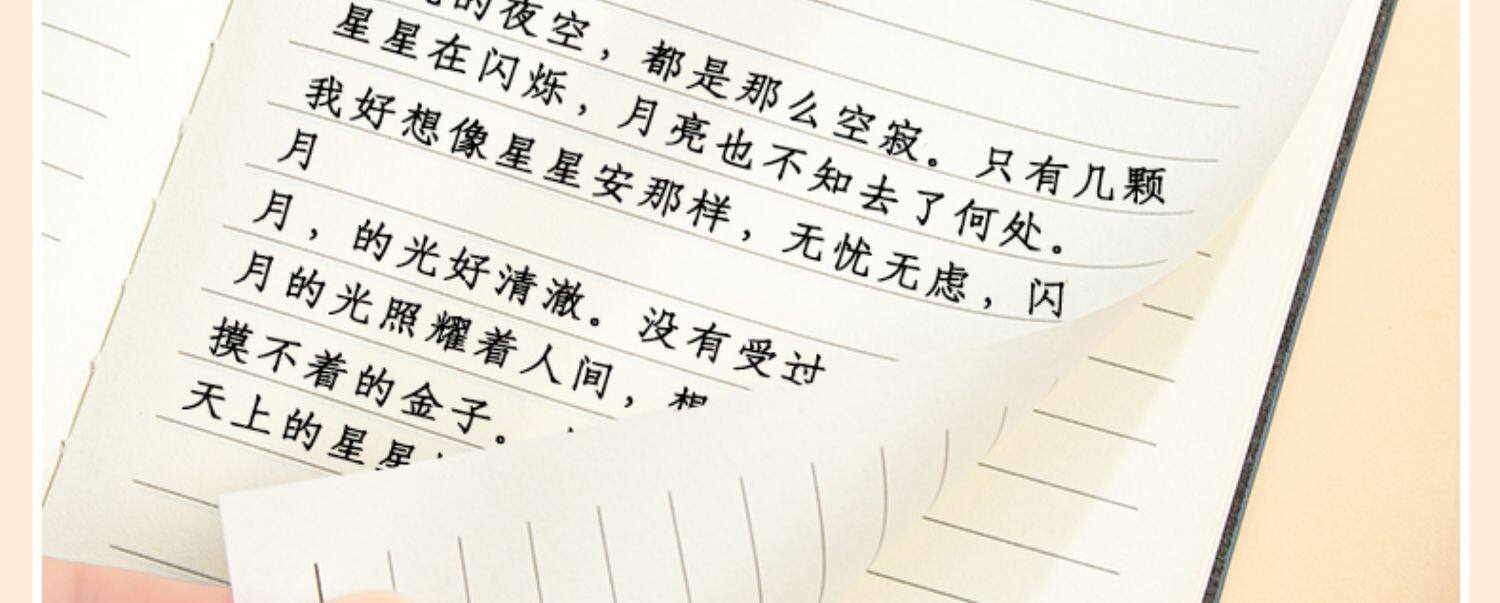 的夜空，都是那么空寂。只有几颗
星星在闪烁，月亮也不知去了何处。
我好想像星星安那样，无忧无虑，闪
月
月，的光好清澈。没有受过
月的光照耀着人间，想
摸不着的金子。
天上的星星